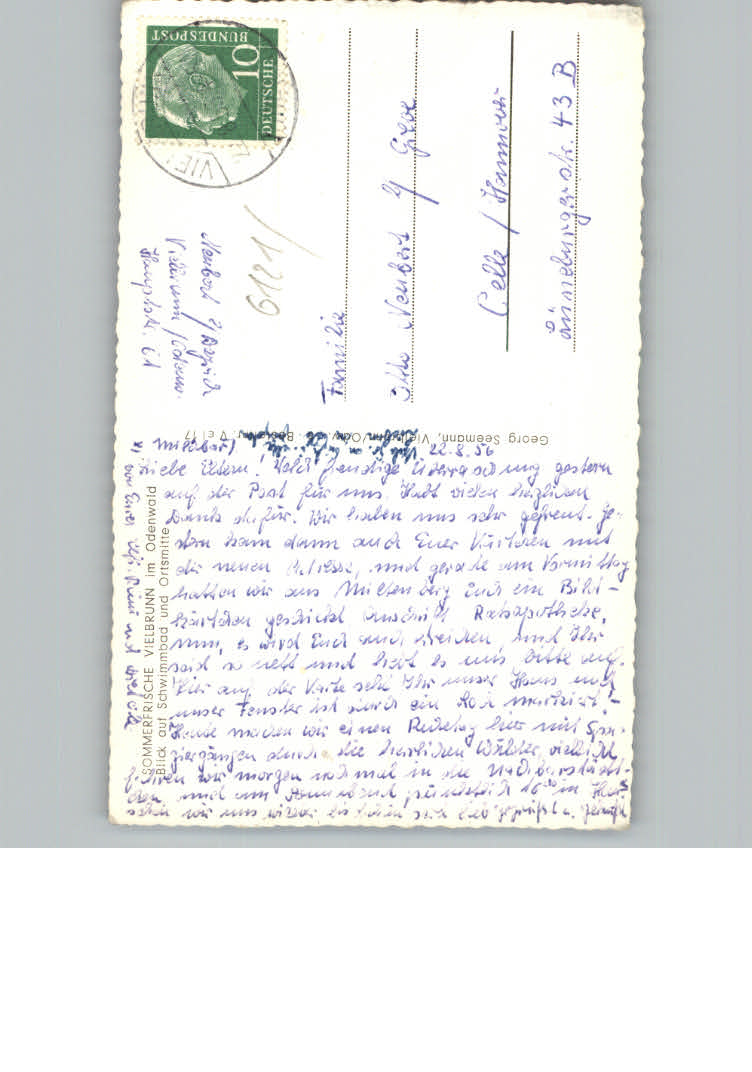 DEUTSCHE
BUNDESPOST
10
VIEL
Neubert
Vielbrunn / Odenw.
Hauptstr. 61
6121/
Familie
Otto Neubert
Celle / Hannover
Lüneburgerstr. 43 B
Georg Seemann, Vielbrunn/Odw. Bestellnr. V el 17
SOMMERFRISCHE VIELBRUNN im Odenwald
Blick auf Schwimmbad und Ortsmitte
22.8.56
Liebe Eltern! Welch freudige Überraschung gestern
auf der Post für uns. Habt vielen herzlichen
Dank dafür. Wir haben uns sehr gefreut. Ge-
stern kam dann auch Euer Kärtchen mit
der neuen Adresse, und gerade am Vormittag
hatten wir aus Miltenberg Euch ein Bild-
kärtchen geschickt Anschrift Ratsapotheke,
nun, es wird Euch auch erreichen und Ihr
seid so nett und hebt es uns bitte auf.
Hier auf der Karte seht Ihr unser Haus und
unser Fenster ist durch ein Kreuz markiert.-
Heute machen wir einen Ruhetag hier mit Spa-
ziergängen durch die herrlichen Wälder, vielleicht
fahren wir morgen nochmal in die Nachbarstädt-
chen und am Sonnabend pünktlich
sehen wir uns wieder, bis dahin lieb gegrüßt u. geküßt
von Euer und